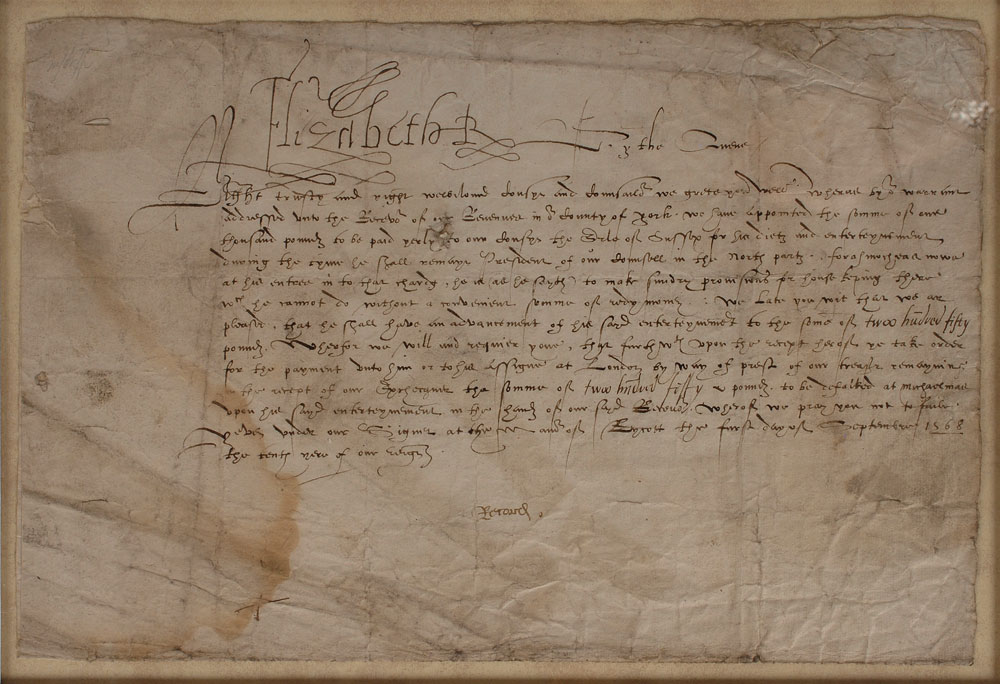 Elizabeth R
By the Quene
Right trusty and right welbeloved Cousyn and Counsailor we grete you well. Wheras by or warrant
addressed unto the Recevor of or Revenues in or County of York, we have appointed the somme of one
thousand poundes to be paid yerly to our Cousyn the Erle of Sussex for his diete and enterteynement
during the tyme he shall remayn President of our Counsell in the North partes. forasmoch as now
at his entree in to that chardg, he is (as he sayth) to make sundry provisions for house keping there
wch he cannot do without a convenient somme of redy mony: We late you wit that we ar
pleased, that he shall have an advancement of his sayd enterteynement to the some of twoo hundred fifty
poundes. Wherfor we will and requier youe, that furthwth upon the receipt herof ye take order
for the payment unto him or to his assigne at London by way of prest of our treasur remayning
in the receipt of our Exchequer the somme of twoo hundred fifty poundes to be defalted at michaelmas
upon his sayd enterteynement in the handes of our sayd Recevor. Wherof we pray you not to faile.
Yeven under our Signet at the of the first day of Septembre 1568
the tenth yere of our reign.
Record.